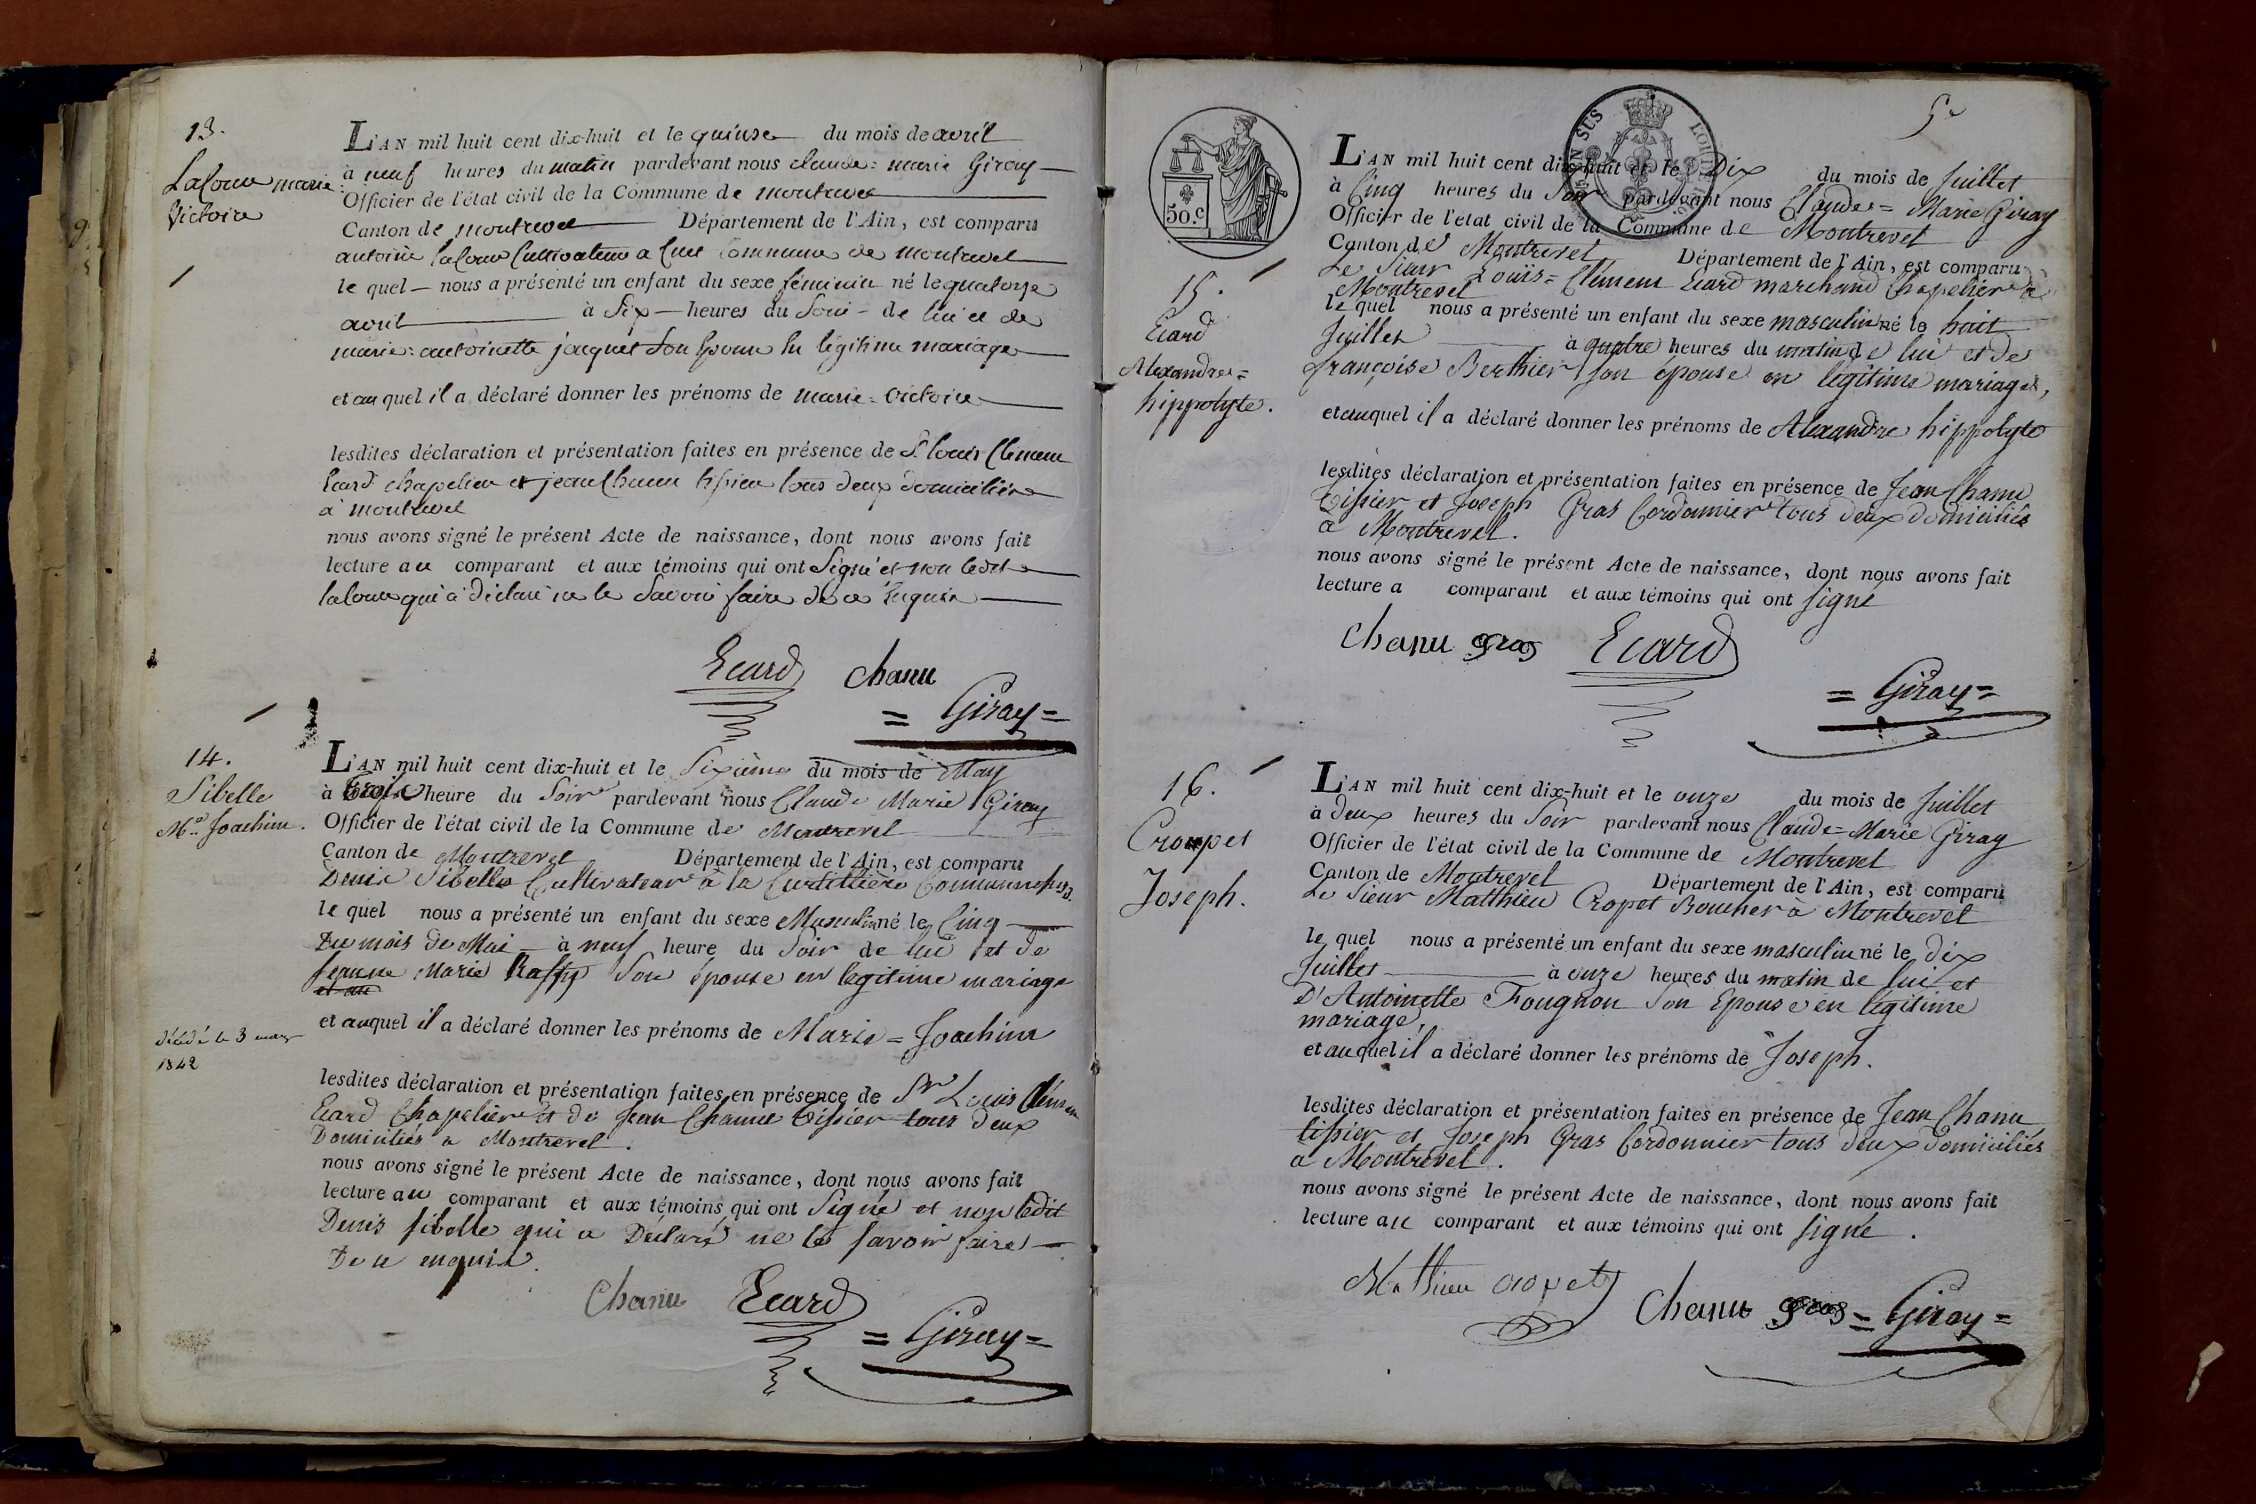 13.
Lacour marie
Victoire
L'AN mil huit cent dix-huit et le quinse du mois de avril
à neuf heures du matin pardevant nous claude = marie Giray
Officier de l'état civil de la Commune de montrevel
Canton de montrevel Département de l'Ain, est comparu
antoine lacour Cultivateur a Cuet Commune de montrevel
le quel nous a présenté un enfant du sexe féminin né le quatorze
avril à Six heures du Soir de lui et de
marie = antoinette jacquet Son Epouse en légitime mariage
et au quel il a déclaré donner les prénoms de marie = victoire
lesdites déclaration et présentation faites en présence de Sr louis Clement
Ecard chapelier et jean Chanu tissier tous deux domiciliés
à montrevel
nous avons signé le présent Acte de naissance, dont nous avons fait
lecture au comparant et aux témoins qui ont Signé et non ledit
lacour qui a déclaré ne le Savoir faire de ce Enquis
Ecard chanu
= Giray =
14.
Sibelle
Mie Joachim.
décédé le 3 mars
1842
L'AN mil huit cent dix-huit et le Sixième du mois de May
à trois heure du Soir pardevant nous Claude Marie Giray
Officier de l'état civil de la Commune de Montrevel
Canton de Montrevel Département de l'Ain, est comparu
Denis Sibelle Cultivateur à la Curtillière Commune
le quel nous a présenté un enfant du sexe Masculin né le Cinq
Du mois de Mai à neuf heure du Soir de lui et de
femme Marie Raffy Son épouse en légitime mariage
et au
et auquel il a déclaré donner les prénoms de Marie = Joachim
lesdites déclaration et présentation faites en présence de Sr Louis Clément
Ecard Chapelier et de Jean Chanu tissier tous deux
Domiciliés a Montrevel.
nous avons signé le présent Acte de naissance, dont nous avons fait
lecture au comparant et aux témoins qui ont Signé et non ledit
Denis sibelle qui a Déclaré ne le savoir faire
De ce enquis.
Chanu Ecard
= Giray =
5e
50. C
15.
Ecard
Alexandre =
hippolyte.
L'AN mil huit cent dix-huit et le Dix du mois de Juillet
à Cinq heures du Soir pardevant nous Claude = Marie Giray
Officier de l'état civil de la Commune de Montrevel
Canton de Montrevel Département de l'Ain, est comparu
Le Sieur Louis = Clément Ecard marchand Chapelier à
Montrevel
le quel nous a présenté un enfant du sexe masculin né le huit
Juillet à quatre heures du matin de lui et de
françoise Berthier son épouse en légitime mariage,
et auquel il a déclaré donner les prénoms de Alexandre hippolyte
lesdites déclaration et présentation faites en présence de Jean Chanu
tissier et Joseph Gras Cordonnier tous deux domiciliés
a Montrevel.
nous avons signé le présent Acte de naissance, dont nous avons fait
lecture a comparant et aux témoins qui ont signé
Chanu gras Ecard
= Giray =
16.
Cropet
Joseph.
L'AN mil huit cent dix-huit et le onze du mois de Juillet
à deux heures du Soir pardevant nous Claude = Marie Giray
Officier de l'état civil de la Commune de Montrevel
Canton de Montrevel Département de l'Ain, est comparu
Le Sieur Matthieu Cropet Boucher à Montrevel
le quel nous a présenté un enfant du sexe masculin né le dix
Juillet à onze heures du matin de lui et
D'Antoinette Fougnon Son Epouse en légitime
mariage,
et auquel il a déclaré donner les prénoms de Joseph.
lesdites déclaration et présentation faites en présence de Jean Chanu
tissier et Joseph Gras Cordonnier tous deux domiciliés
a Montrevel.
nous avons signé le présent Acte de naissance, dont nous avons fait
lecture au comparant et aux témoins qui ont signé.
Mathieu cropet
Chanu gras = Giray =